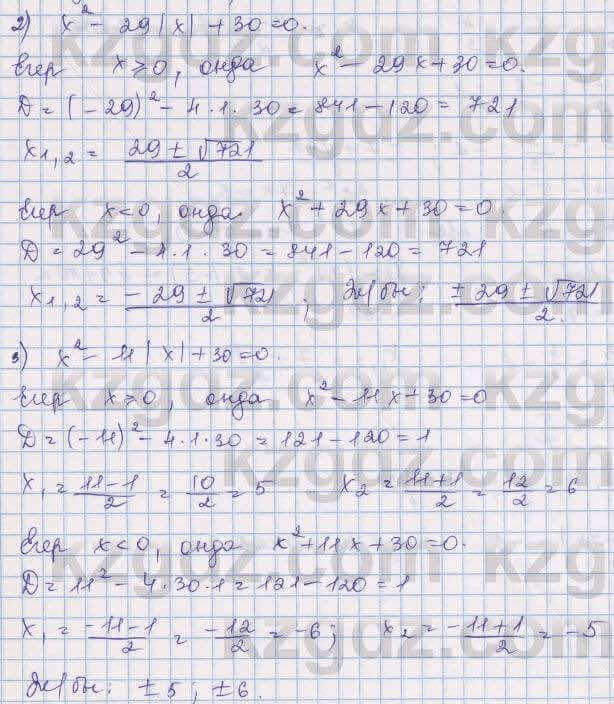 2) x² - 29|x| + 30 = 0.
Егер x ≥ 0, онда x² - 29x + 30 = 0.
D = (-29)² - 4·1·30 = 841 - 120 = 721
x₁,₂ = (29 ± √721)/2
Егер x < 0, онда x² + 29x + 30 = 0.
D = 29² - 4·1·30 = 841 - 120 = 721
x₁,₂ = (-29 ± √721)/2 ; Ж/бы: (±29 ± √721)/2.
3) x² - 11|x| + 30 = 0.
Егер x ≥ 0, онда x² - 11x + 30 = 0
D = (-11)² - 4·1·30 = 121 - 120 = 1
x₁ = (11-1)/2 = 10/2 = 5 x₂ = (11+1)/2 = 12/2 = 6
Егер x < 0, онда x² + 11x + 30 = 0.
D = 11² - 4·30·1 = 121 - 120 = 1
x₁ = (-11-1)/2 = -12/2 = -6; x₂ = (-11+1)/2 = -5
Ж/бы: ±5; ±6.
kzgdz.com